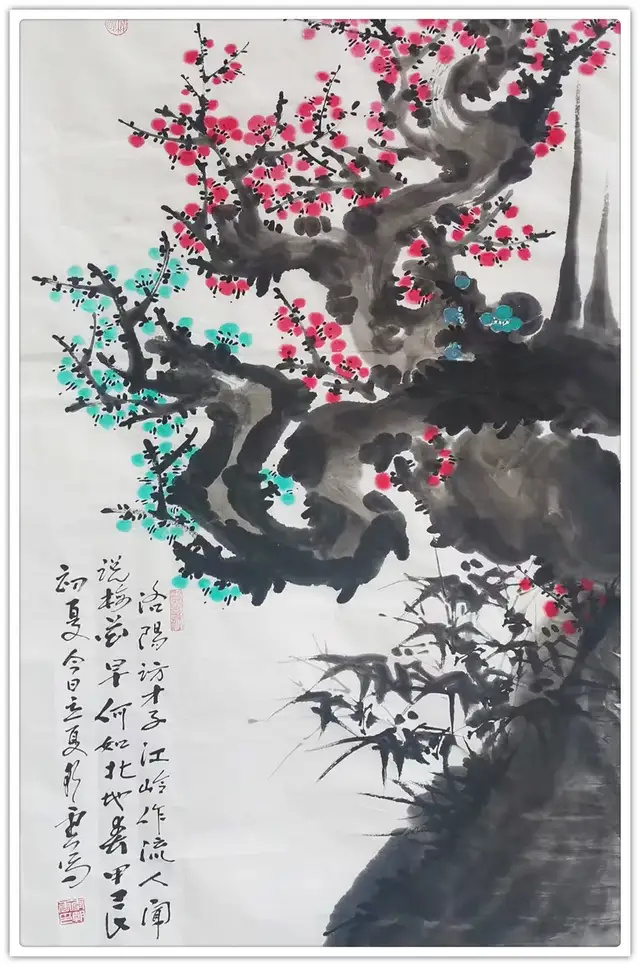 洛陽访才子江岭作流人闻
说梅花早何如北地春甲辰
初夏今日立夏写